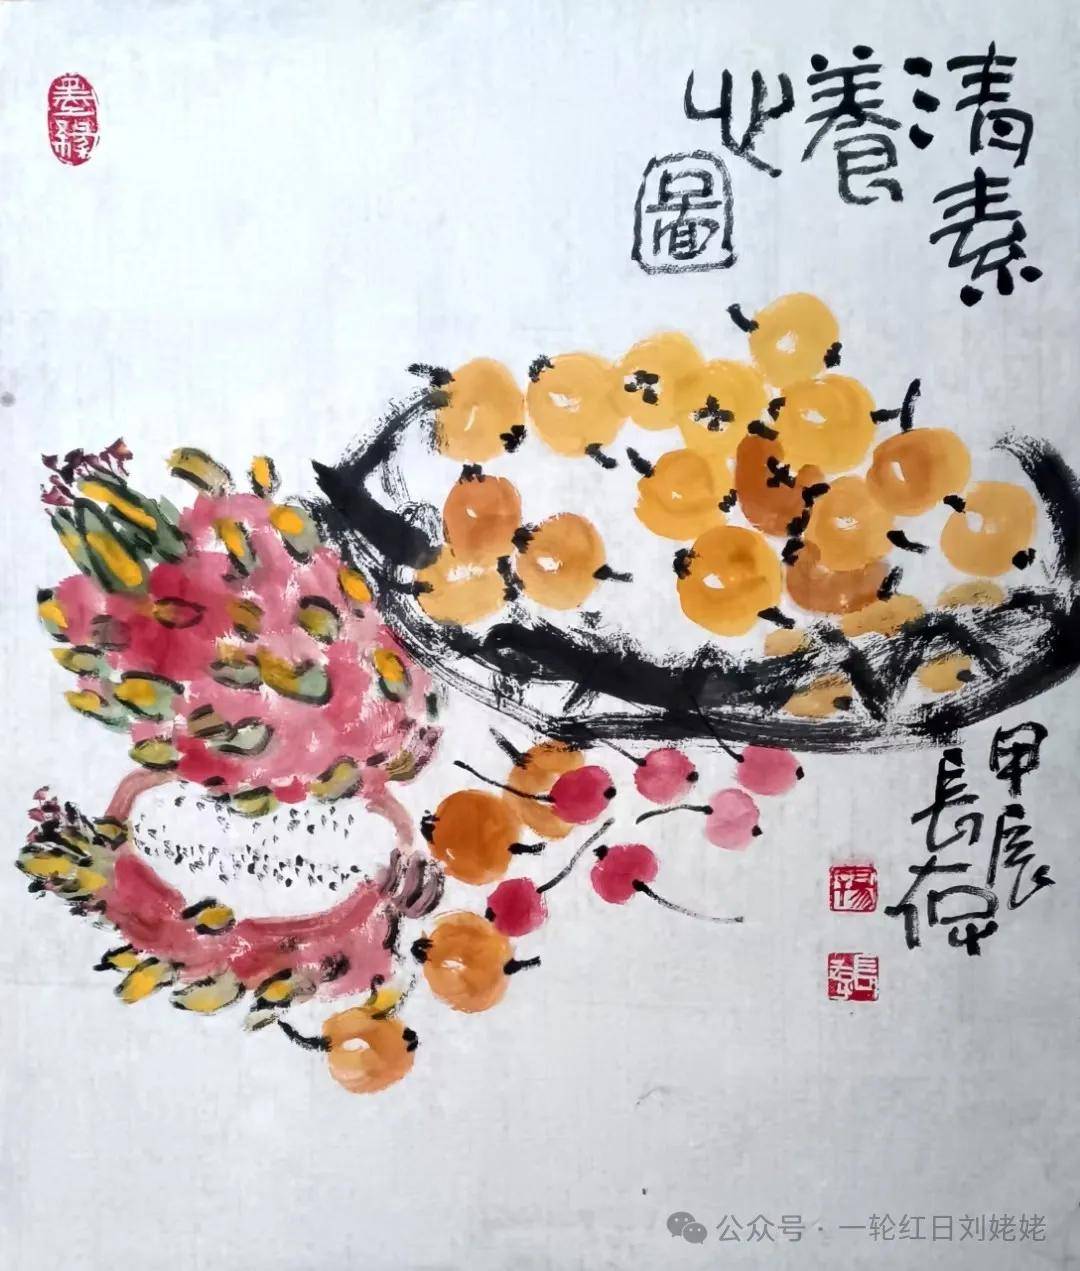 清素
養
之圖
墨緣
甲辰
長
公众号 · 一轮红日刘姥姥